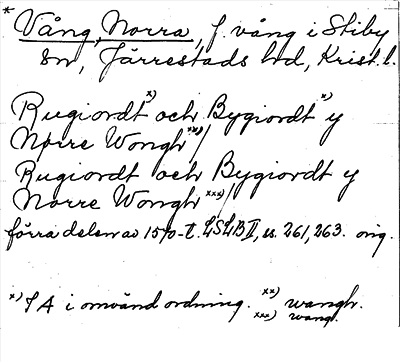 * Vång, Norra, f. vång i Stiby
sn, Järrestads hd, Krist. l.
Rugiordt x) och Bygiordt x) y
Nørre Wongh xx)/
Rugiordt och Bygiordt y
Norre Wongh xxx)/
förra delen av 1570-t. LSLB II, ss. 261, 263. orig.
x) S A i omvänd ordning. xx) wangh.
xxx) wang.